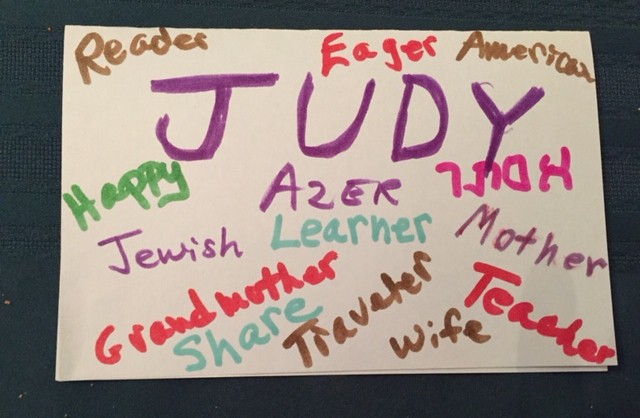 Reader
Eager
American
JUDY
Happy
AZER
Jewish
Learner
Mother
Grandmother
Share
Traveler
Wife
Teacher